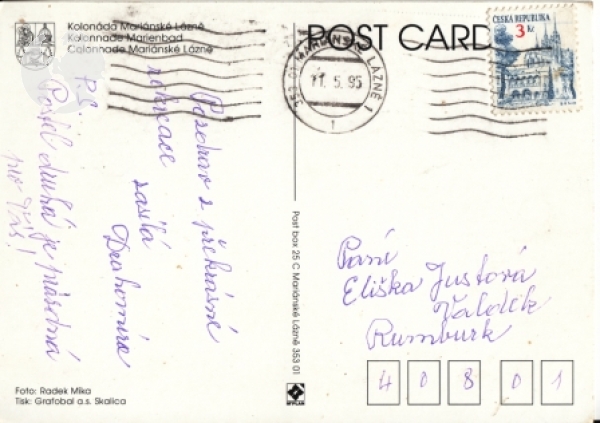 Kolonáda Mariánské Lázně
Kolonnade Marienbad
Colonnade Mariánské Lázně
POST CARD
ČESKÁ REPUBLIKA
3 Kč
353 01 MARIÁNSKÉ LÁZNĚ 1
11. 5. 95
Pozdrav z překrásné
rekreace
zasílá
Drahomíra
P.S.
Postel druhá je prázdná
pro Vás!
Post box 25 C Mariánské Lázně 353 01
Paní
Eliška Justová
Valdek
Rumburk
408 01
Foto: Radek Mika
Tisk: Grafobal a.s. Skalica